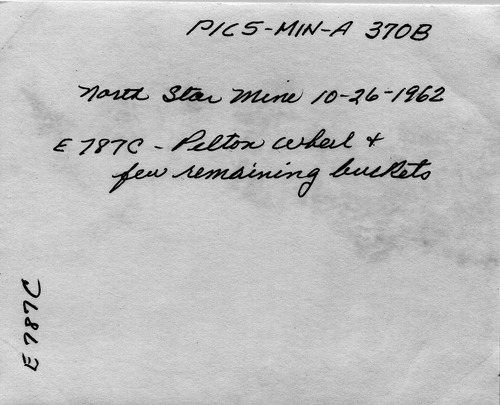 PICS-MIN-A 370B
North Star Mine 10-26-1962
E787C - Pelton wheel &
few remaining buckets
E787C